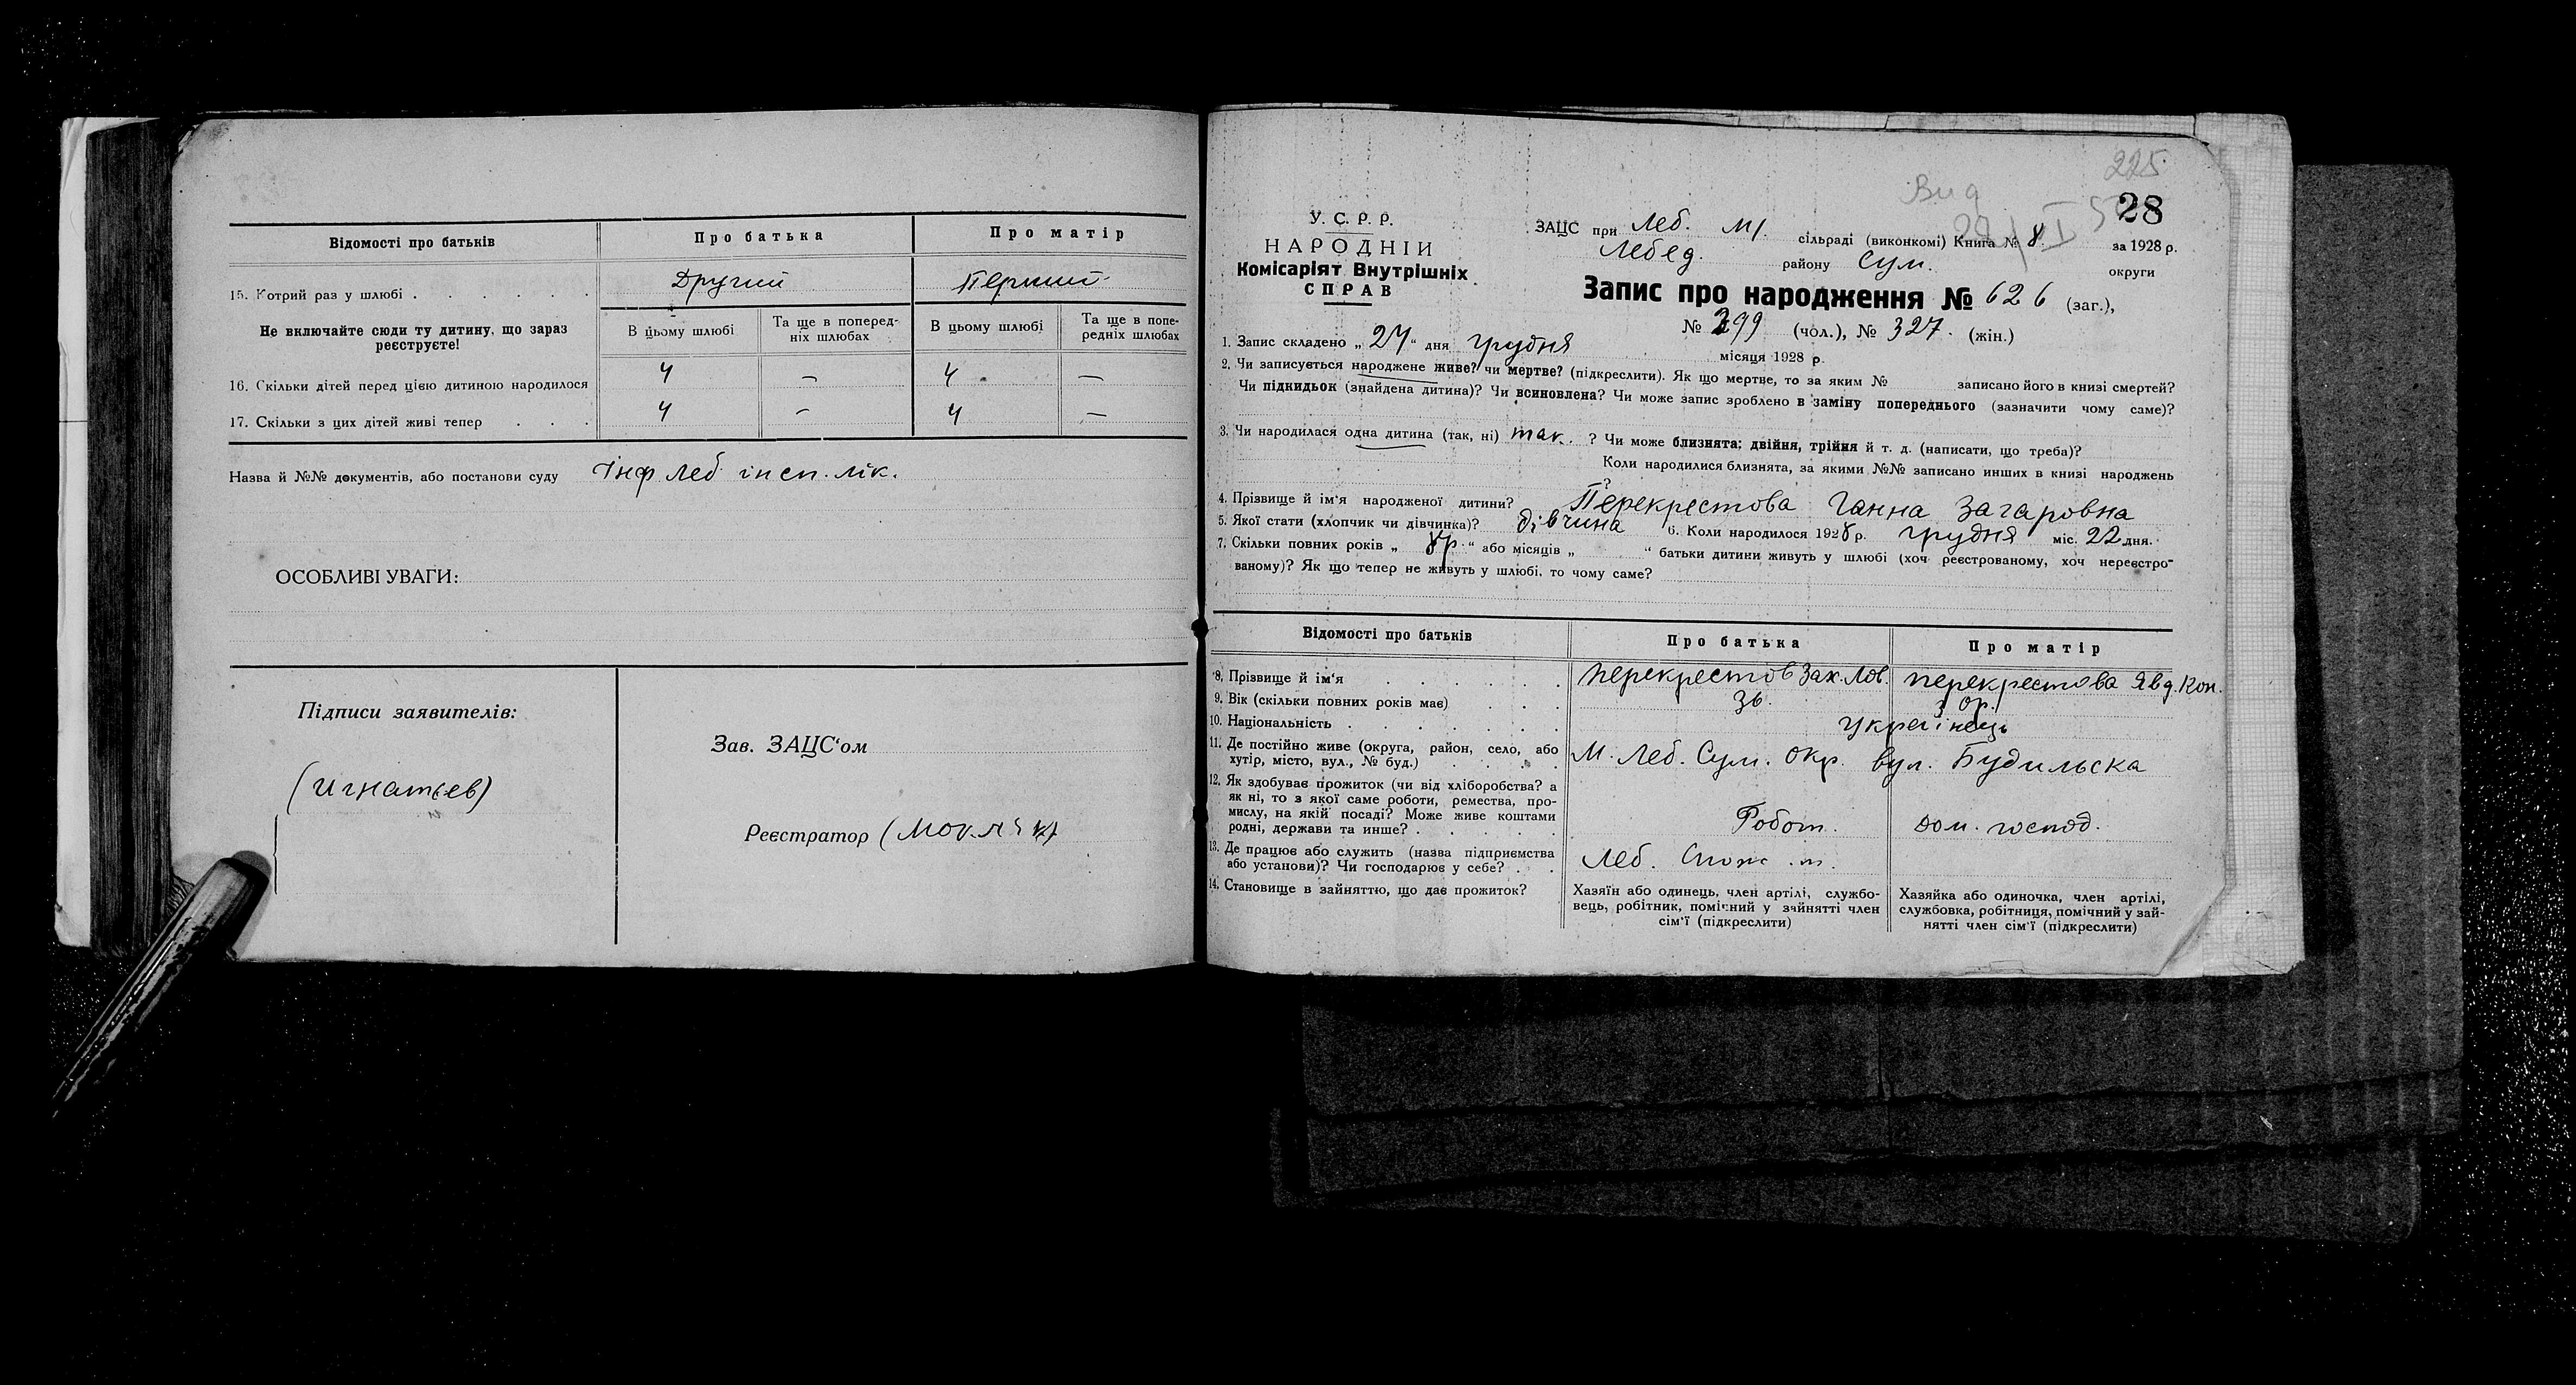 Відомості про батьків
Про батька
Про матір
15. Котрий раз у шлюбі
Другий
Перший
Не включайте сюди ту дитину, що зараз реєструєте!
В цьому шлюбі
Та ще в поперед-
ніх шлюбах
В цьому шлюбі
Та ще в попе-
редніх шлюбах
16. Скільки дітей перед цією дитиною народилося
4 — 4 —
17. Скільки з цих дітей живі тепер
4 — 4 —
Назва й №№ документів, або постанови суду Інф Леб. інсп. лік.
ОСОБЛИВІ УВАГИ:
Підписи заявителів:
(Игнатьев)
Зав. ЗАЦС'ом
Реєстратор
225
Вид
28
У. С. Р. Р.
НАРОДНІЙ
Комісаріят Внутрішніх
СПРАВ
ЗАЦС при Леб. м/. сільраді (виконкомі) Книга № 8 за 1928 р.
Лебед. району Сум. округи
Запис про народження № 626 (заг.),
№ 299 (чол.), № 327. (жін.)
1. Запис складено „ 24 “ дня грудня місяця 1928 р.
2. Чи записується народжене живе? чи мертве? (підкреслити). Як що мертве, то за яким № записано його в книзі смертей?
Чи підкидьок (знайдена дитина)? Чи всиновлена? Чи може запис зроблено в заміну попереднього (зазначити чому саме)?
3. Чи народилася одна дитина (так, ні) так. ? Чи може близнята: двійня, трійня й т. д. (написати, що треба)?
Коли народилися близнята, за якими №№ записано инших в книзі народжень
?
4. Прізвище й ім'я народженої дитини? Перекрестова Ганна Загаровна
5. Якої стати (хлопчик чи дівчинка)? дівчина 6. Коли народилося 1928 р. грудня міс. 22 дня.
7. Скільки повних років „ 8р. “ або місяців „ “ батьки дитини живуть у шлюбі (хоч реєстрованому, хоч нереєстро-
ваному)? Як що тепер не живуть у шлюбі, то чому саме?
Відомості про батьків
Про батька
Про матір
8. Прізвище й ім'я
Перекрестов Зах. Лов.
Перекрестова Явд. Кон.
9. Вік (скільки повних років має)
36.
30р.
10. Національність
Українець
11. Де постійно живе (округа, район, село, або
хутір, місто, вул., № буд.)
М. Леб. Сум. окр. вул. Будильска
12. Як здобуває прожиток (чи від хліборобства? а
як ні, то з якої саме роботи, ремества, про-
мислу, на якій посаді? Може живе коштами
родні, держави та инше?
Робот.
дом. господ.
13. Де працює або служить (назва підприємства
або установи)? Чи господарює у себе?
Леб. Спож. т.
14. Становище в зайняттю, що дає прожиток?
Хазяїн або одинець, член артілі, службо-
вець, робітник, помічний у зайнятті член
сім'ї (підкреслити)
Хазяйка або одиночка, член артілі,
службовка, робітниця, помічний у зай-
нятті член сім'ї (підкреслити)